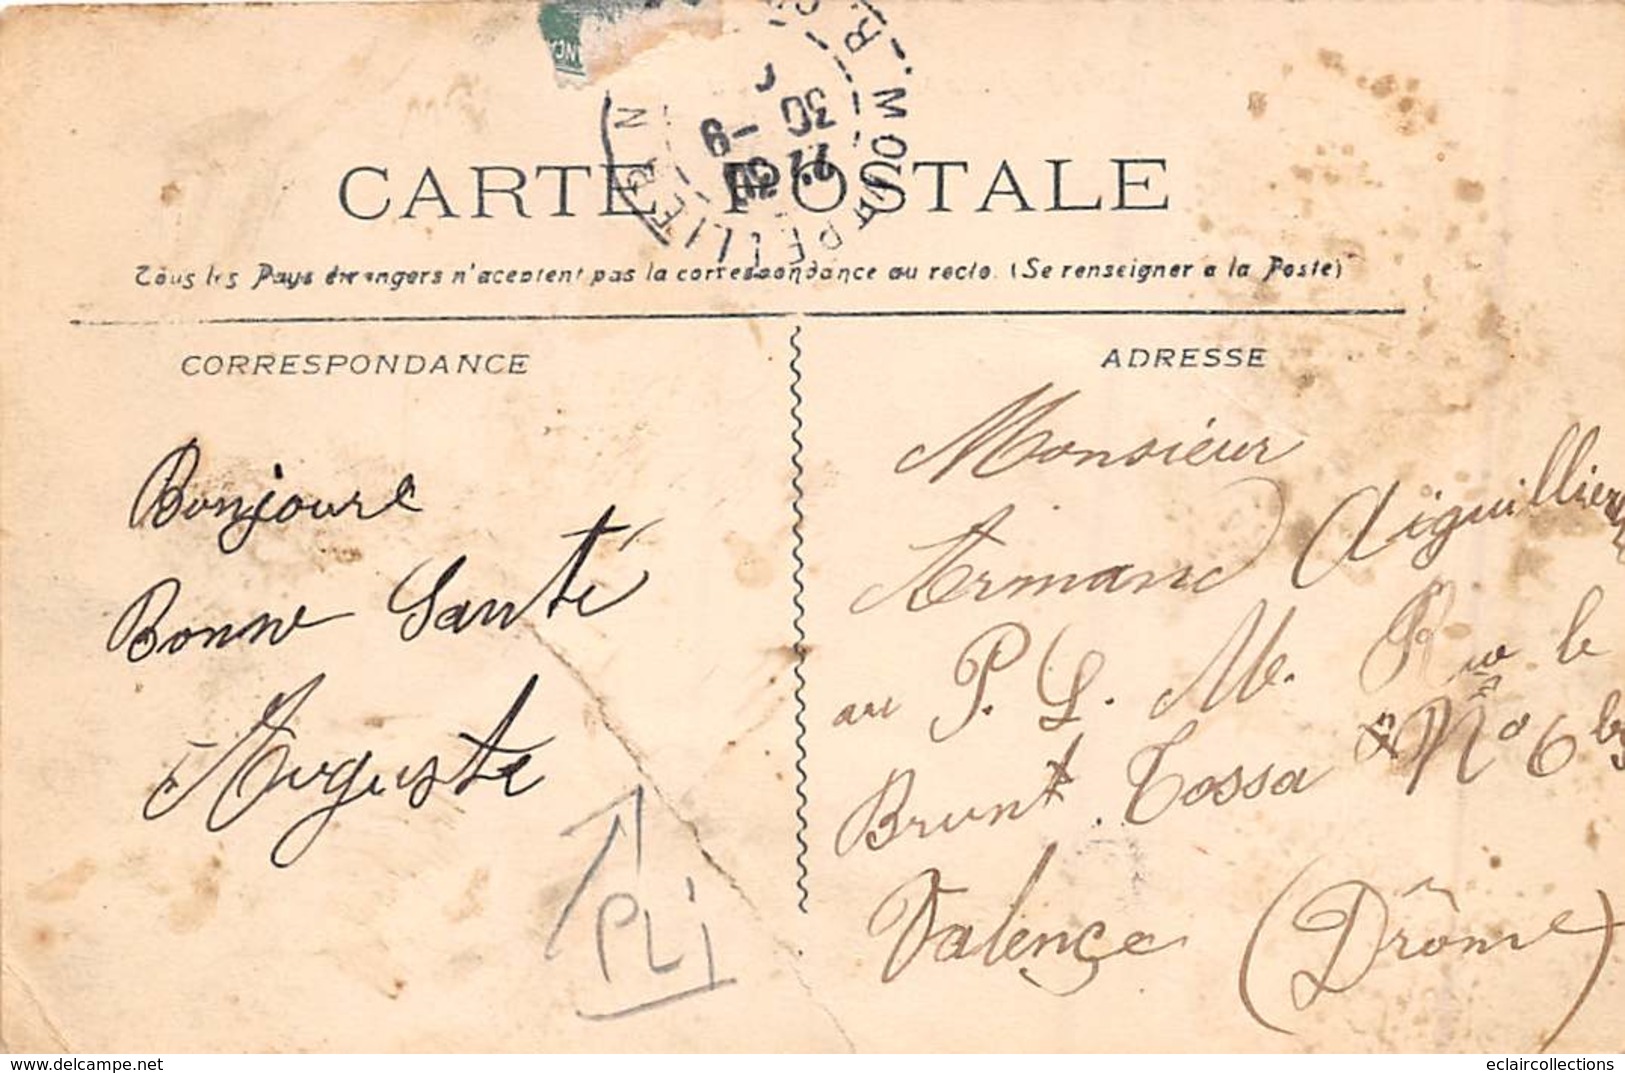 CARTE POSTALE
Tous les Pays étrangers n'acceptent pas la correspondance au recto. (Se renseigner a la Poste)
CORRESPONDANCE
ADRESSE
Bonjoure
Bonne Santé
Auguste
PLI
Monsieur
Armand Aiguillier
au P. L. M. Rue le
Brunt Cossa No 6 bis
Valençe (Drôme)
22
30
MONTPELLIER
delcampe.net
eclaircollections